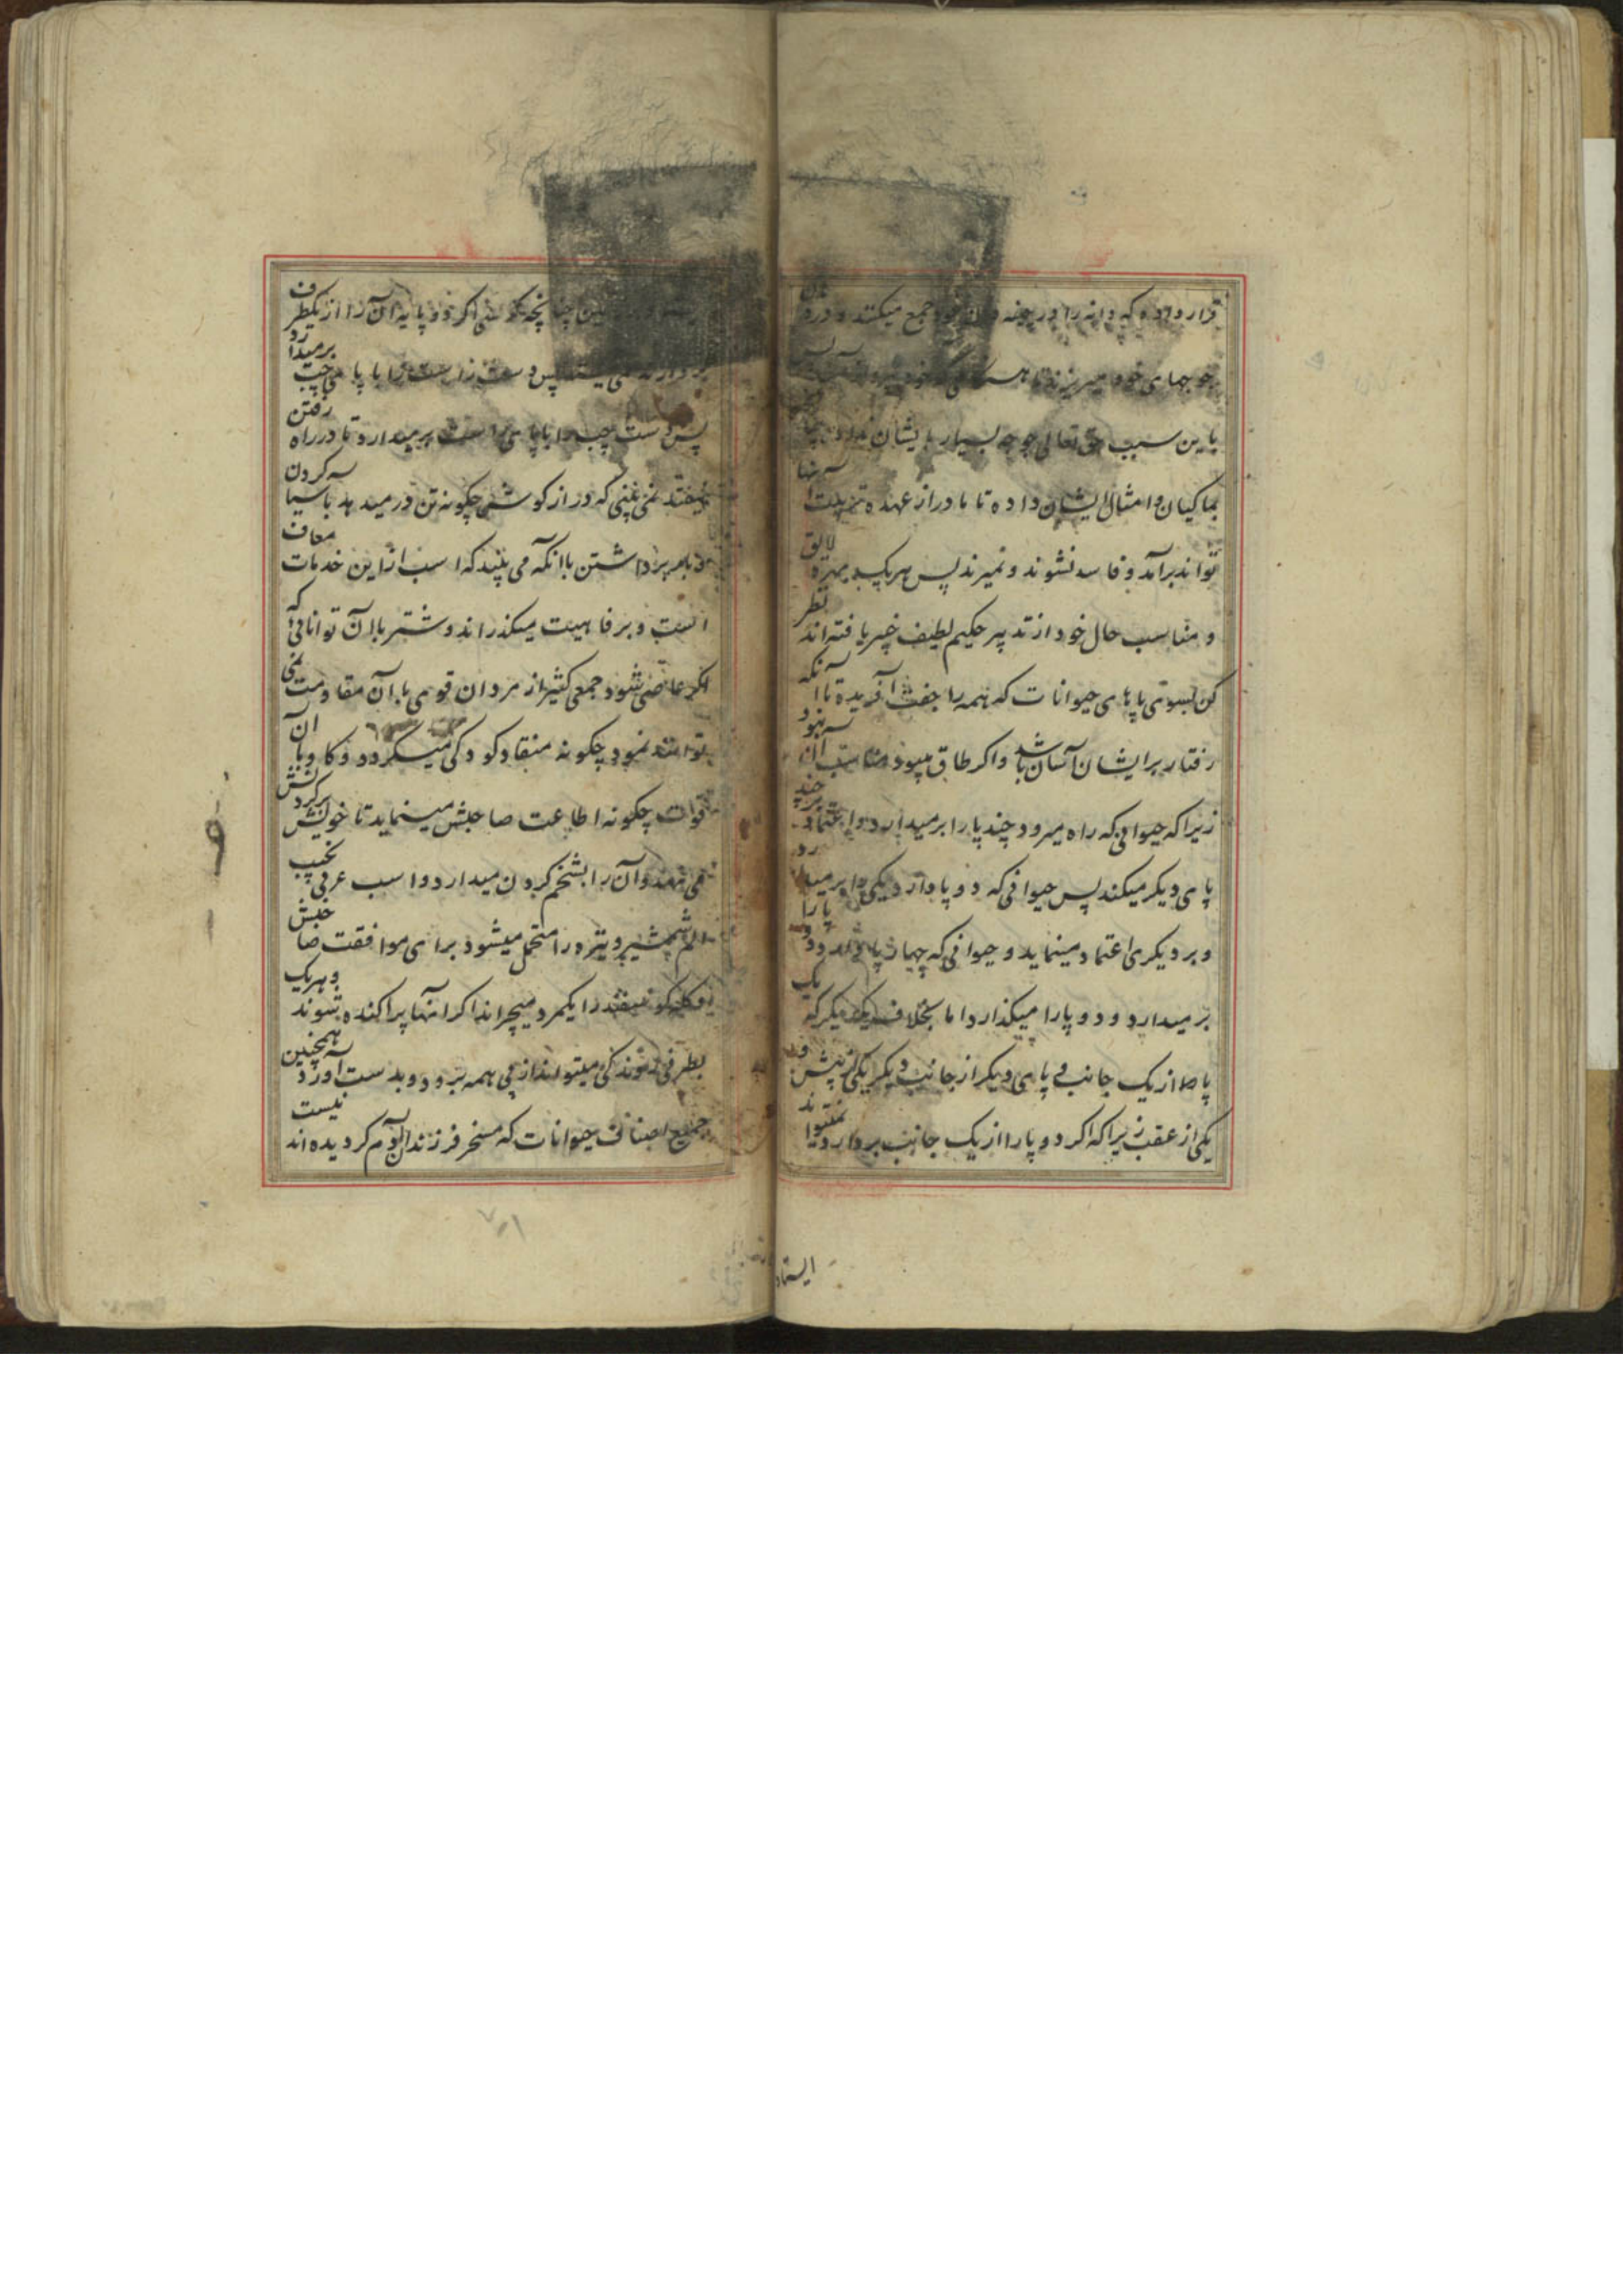 قرار داده که دانه را در چینه دان خود جمع میکنند و در دهان
جوجهای خود میریزند تا
باین سبب حق تعالی جوجه بسیار بایشان نداده چنانچه
بماکیان و امثال ایشان داده تا مادر از عهده تربیت آنها
تواند برآمد و فاسد نشوند و نمیرند پس هر یک بهره لایق
و مناسب حال خود از تدبیر حکیم لطیف خبیر یافته اند نظر
کن بسوی پاهای حیوانات که همه را جفت آفریده تا آنکه
رفتار بر ایشان آسان باشد و اگر طاق میبود مناسب آن نبود
زیرا که حیوانی که راه میرود چند پا را برمیدارد و اعتماد بر چند
پای دیگر میکند پس حیوانی که دو پا دارد یکی را برمیدارد
و بر دیگری اعتماد مینماید و حیوانی که چهار پا دارد دو پا را
برمیدارد و دو پا را میگذارد اما بخلاف یکدیگر که یک
پا را از یک جانب و پای دیگر از جانب دیگر یکی از پیش و
یکی از عقب زیرا که اگر دو پا را از یک جانب بردارد نمیتواند
ایستاد
چنانچه کرسی اگر دو پایه آن را از یکطرف
بردارند نمی ایستد پس دست راست را با پای چپ برمیدارد
پس دست چپ را با پای راست برمیدارد تا در راه رفتن
نیفتد نمی بینی که درازگوش چگونه تن در میدهد بآسیا کردن
و بار برداشتن با آنکه می بیند که اسب از این خدمات معاف
است و برفاهیت میگذراند و شتر با آن توانائی که
اگر عاصی شود جمعی کثیر از مردان قوی با آن مقاومت نمی
توانند نمود چگونه منقاد کودکی میگردد و گاو با آن
قوت چگونه اطاعت صاحبش مینماید تا خویش بر گردنش
می نهد و آن را بشخم کردن میدارد و اسب عربی نجیب
الم شمشیر و نیزه را متحمل میشود برای موافقت صاحبش
و گله گوسفند را یکمرد میچراند اگر آنها پراکنده شوند و هر یک
بطرفی روند کی میتواند از پی همه برود و بدست آورد همچنین
جمیع اصناف حیوانات که مسخر فرزندان آدم گردیده اند نیست